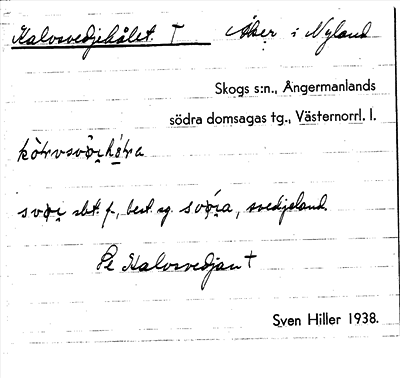 Kalvsvedjehålet † Åker i Nyland
Skogs s:n., Ångermanlands
södra domsagas tg., Västernorrl. l.
sbt. f., best. sg. svedjeland.
Se Kalvsvedjan †
Sven Hiller 1938.